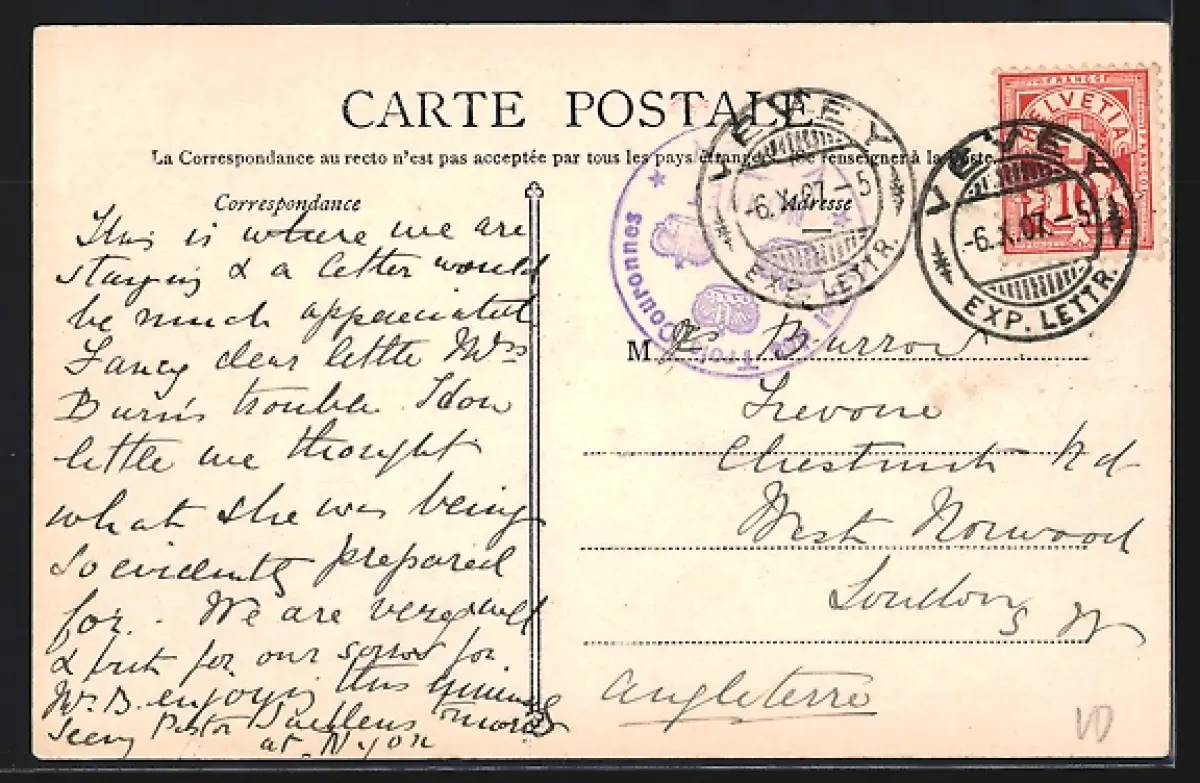 CARTE POSTALE
La Correspondance au recto n'est pas acceptée par tous les pays étrangers. (Se renseigner à la Poste.
Correspondance
This is where we are
staying & a letter would
be much appreciated
Fancy dear little Mrs
Burn's trouble. How
little we thought
what she was being
so evidently prepared
for. - We are very well
& but for our sorrow for
Mr. B. enjoying this
Seeing Pastor
at Nyon
Adresse
M. Burrow
Trevone
Chestnut Rd
West Norwood
London
Angleterre
VD
Trois Couronnes
VEVEY
-6.X.07.-5
EXP. LETTR.
FRANCO
HELVETIA
10
VEVEY
-6.X.07.-5
EXP. LETTR.